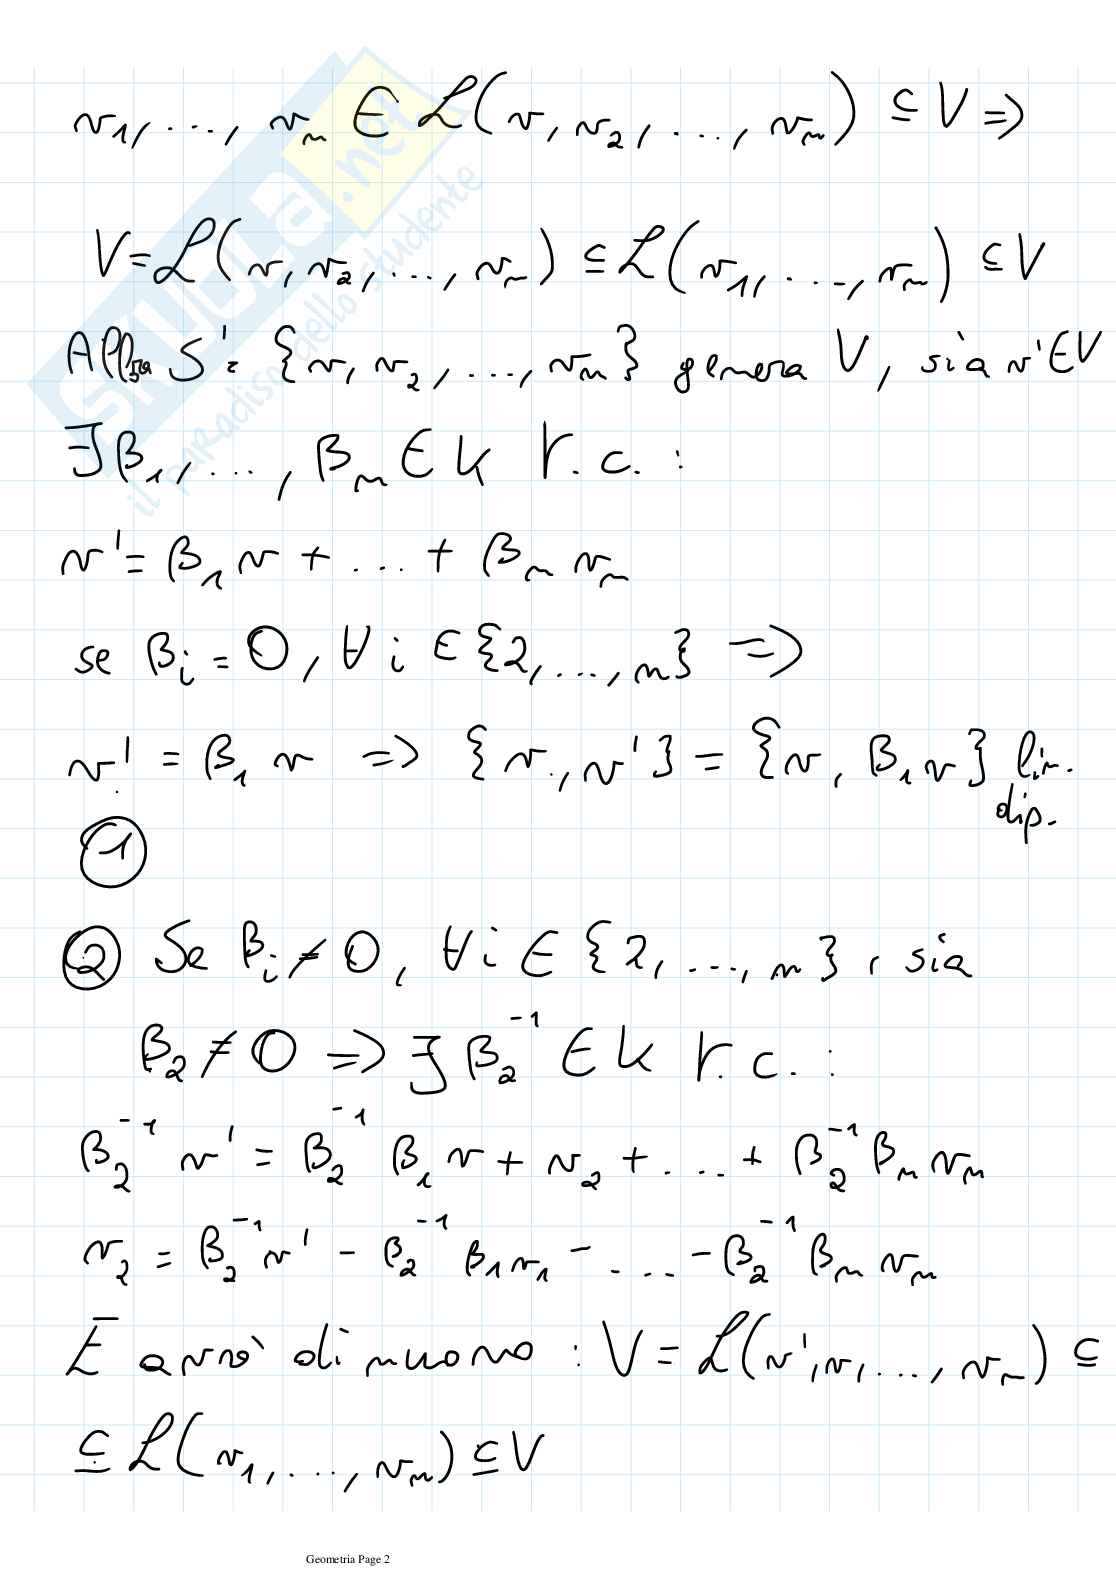 v₁, ..., vₙ ∈ ℒ(v, v₂, ..., vₙ) ⊆ V ⇒
V = ℒ(v, v₂, ..., vₙ) ⊆ ℒ(v₁, ..., vₙ) ⊆ V
Allora S' = {v, v₂, ..., vₙ} genera V, sia v' ∈ V
∃ β₁, ..., βₙ ∈ k t.c. :
v' = β₁ v + ... + βₙ vₙ
se βᵢ = 0, ∀ i ∈ {2, ..., n} ⇒
v' = β₁ v ⇒ {v, v'} = {v, β₁ v} lin.
dip.
①
② Se βᵢ ≠ 0, ∀ i ∈ {2, ..., n}, sia
β₂ ≠ 0 ⇒ ∃ β₂⁻¹ ∈ k t.c. :
β₂⁻¹ v' = β₂⁻¹ β₁ v + v₂ + ... + β₂⁻¹ βₙ vₙ
v₂ = β₂⁻¹ v' - β₂⁻¹ β₁ v₁ - ... - β₂⁻¹ βₙ vₙ
E avrò di nuovo : V = ℒ(v', v, ..., vₙ) ⊆
⊆ ℒ(v₁, ..., vₙ) ⊆ V
SKUOLA.net
il paradiso dello studente
Geometria Page 2